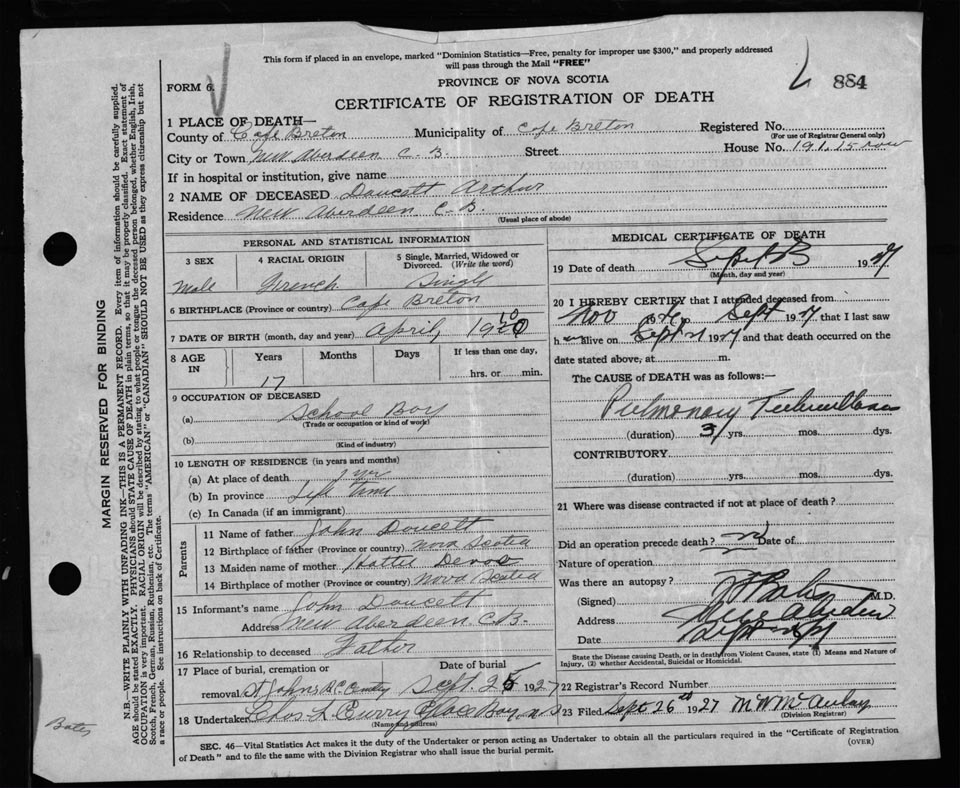 This form if placed in an envelope, marked "Dominion Statistics—Free, penalty for improper use $300," and properly addressed
will pass through the Mail "FREE"
PROVINCE OF NOVA SCOTIA
884
FORM 6.
CERTIFICATE OF REGISTRATION OF DEATH
1 PLACE OF DEATH—
County of Cape Breton Municipality of Cape Breton Registered No.
(For use of Registrar General only)
City or Town New Aberdeen C.B. Street House No. 191. 15 row
If in hospital or institution, give name
2 NAME OF DECEASED Doucett Arthur
Residence New Aberdeen C.B.
(Usual place of abode)
PERSONAL AND STATISTICAL INFORMATION
3 SEX 4 RACIAL ORIGIN 5 Single, Married, Widowed or Divorced. (Write the word)
Male French Single
6 BIRTHPLACE (Province or country) Cape Breton
7 DATE OF BIRTH (month, day and year) April, 1910
8 AGE IN Years Months Days If less than one day,
17 hrs. or min.
9 OCCUPATION OF DECEASED
(a) School Boy
(Trade or occupation or kind of work)
(b)
(Kind of industry)
10 LENGTH OF RESIDENCE (in years and months)
(a) At place of death yr
(b) In province Life Time
(c) In Canada (if an immigrant)
Parents
11 Name of father John Doucett
12 Birthplace of father (Province or country) Nova Scotia
13 Maiden name of mother Hattie
14 Birthplace of mother (Province or country) Nova Scotia
15 Informant's name John Doucett
Address New Aberdeen C.B.
16 Relationship to deceased Father
17 Place of burial, cremation or Date of burial
removal St Johns R.C. Sept. 25 1927
18 Undertaker Chas L. Curry Glace Bay N S
(Name and address)
MEDICAL CERTIFICATE OF DEATH
19 Date of death Sept 1927
(Month, day and year)
20 I HEREBY CERTIFY that I attended deceased from
Nov 19 to Sept 1927 that I last saw
h alive on Sept 1927 and that death occurred on the
date stated above, at m.
The CAUSE of DEATH was as follows:—
Pulmonary Tuberculosis
(duration) 3 yrs. mos. dys.
CONTRIBUTORY
(duration) yrs. mos. dys.
21 Where was disease contracted if not at place of death?
Did an operation precede death? Date of
Nature of operation
Was there an autopsy?
(Signed) M.D.
Address New Aberdeen
Date Sept
State the Disease causing Death, or in death from Violent Causes, state (1) Means and Nature of
Injury, (2) whether Accidental, Suicidal or Homicidal.
22 Registrar's Record Number
23 Filed Sept 26 1927 M W McAulay
(Division Registrar)
SEC. 46—Vital Statistics Act makes it the duty of the Undertaker or person acting as Undertaker to obtain all the particulars required in the "Certificate of Registration
of Death" and to file the same with the Division Registrar who shall issue the burial permit. (OVER)
MARGIN RESERVED FOR BINDING
N.B.—WRITE PLAINLY WITH UNFADING INK—THIS IS A PERMANENT RECORD. Every item of information should be carefully supplied.
AGE should be stated EXACTLY. PHYSICIANS should STATE CAUSE OF DEATH in plain terms, so that it may be properly classified. Exact statement of
OCCUPATION is very important. RACIAL ORIGIN will be described by stating to what people or tongue the deceased person belonged, whether English, Irish,
Scotch, French, German, Russian, Ruthenian, etc. The terms "AMERICAN" or "CANADIAN" SHOULD NOT BE USED as they express citizenship but not
a race or people. See instructions on back of Certificate.